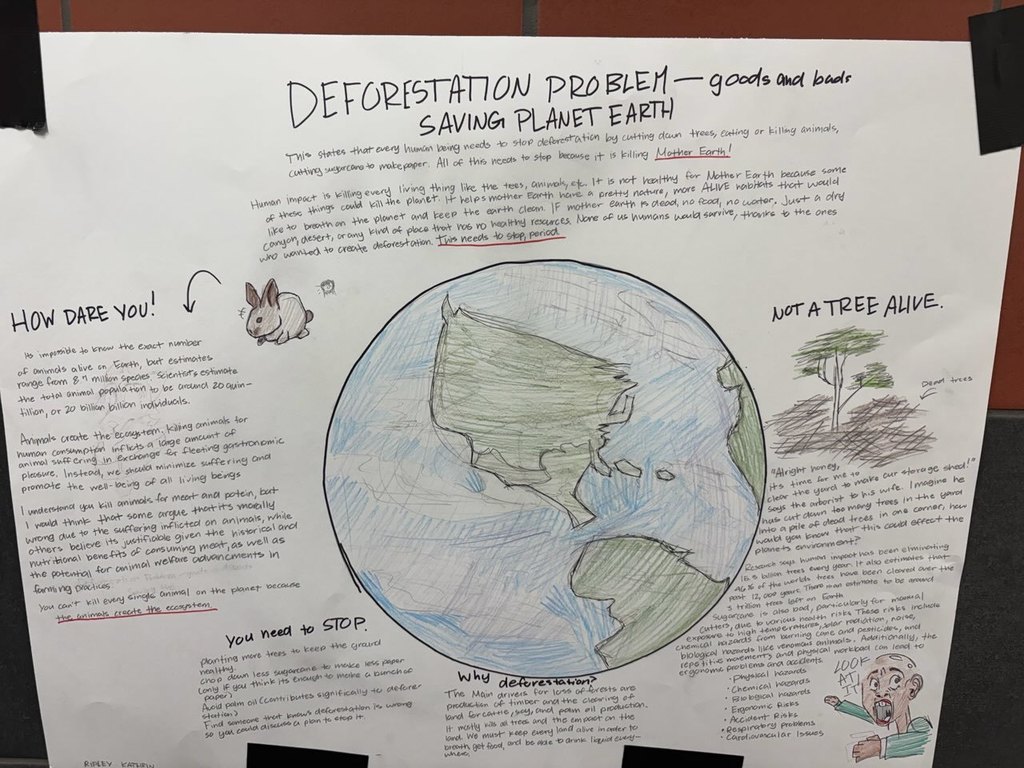 DEFORESTATION PROBLEM — goods and bads
SAVING PLANET EARTH
This states that every human being needs to stop deforestation by cutting down trees, eating or killing animals,
cutting sugarcane to make paper. All of this needs to stop because it is killing Mother Earth!
Human impact is killing every living thing like the trees, animals, etc. It is not healthy for Mother Earth because some
of these things could kill the planet. It helps mother Earth have a pretty nature, more ALIVE habitats that would
like to breath on the planet and keep the earth clean. IF mother earth is dead, no food, no water. Just a dry
canyon, desert, or any kind of place that has no healthy resources. None of us humans would survive, thanks to the ones
who wanted to create deforestation. This needs to stop, period.
HOW DARE YOU!
Its impossible to know the exact number
of animals alive on Earth, but estimates
range from 8.7 million species. Scientists estimate
the total animal population to be around 20 quin-
tillion, or 20 billion billion individuals.
Animals create the ecosystem, killing animals for
human consumption inflicts a large amount of
animal suffering in exchange for fleeting gastronomic
pleasure. Instead, we should minimize suffering and
promote the well-being of all living beings
I understand you kill animals for meat and potein, but
I would think that some argue that it's morally
wrong due to the suffering inflicted on animals, while
others believe its justifiable given the historical and
nutritional benefits of consuming meat, as well as
the potential for animal welfare advancements in
farming practices.
You can't kill every single animal on the planet because
the animals create the ecosystem.
you need to STOP.
planting more trees to keep the ground
healthy.
chop down less sugarcane to make less paper
(only if you think its enough to make a bunch of
paper)
Avoid palm oil (contributs significantly to defore-
station)
Find someone that knows deforestation is wrong
so you could discuss a plan to stop it.
Why deforestation?
The Main drivers for loss of forests are
production of timber and the clearing of
land for cattle, soy, and palm oil production.
It mostly kills all trees and the empact on the
land. We must keep every land alive in order to
breath, get food, and be able to drink liquid every-
where.
NOT A TREE ALIVE.
Dead trees
"Alright honey,
its time for me to
clear the yard to make our storage shed!"
says the arborist to his wife. Imagine he
has cut down too many trees in the yard
into a pile of dead trees in one corner, how
would you know that this could effect the
planets environment?
Research says human impact has been eliminating
15.3 billion trees every year. It also estimates that
46% of the worlds trees have been cleared over the
past 12,000 years. There man estimate to be around
3 trillion trees left on Earth
Sugarcane is also bad, particularly for manual
cutters, due to various health risks. These risks include
exposure to high temperatures, solar radiation, noise,
chemical hazards from burning cane and pesticides, and
biological hazards like venomous animals. Additionally, the
repetitive movements and physical workload can lead to
ergonomic problems and accidents.
• physical hazards
• Chemical hazards
• Biological hazards
• Ergonomic Risks
• Accident Risks
• Respiratory Problems
• Cardiovascular Issues
LOOK
AT
IT
RIPLEY KATHRIN